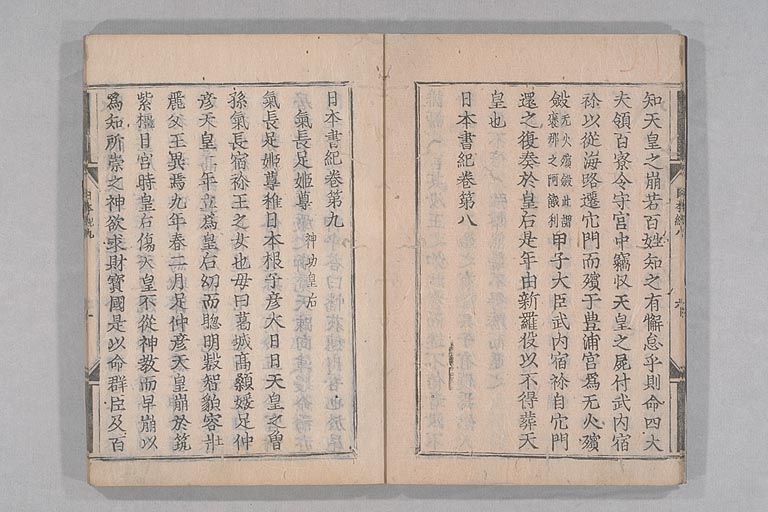 知天皇之崩若百姓知之有懈怠乎則命四大
夫領百寮令守宮中竊収天皇之屍付武内宿
祢以從海路遷穴門而殯于豊浦宮爲无火殯
斂无火殯斂此謂褒那之阿餓利甲子大臣武内宿祢自穴門
還之復奏於皇后是年由新羅役以不得葬天
皇也
日本書紀巻第八
日本書紀巻第九
氣長足姬尊 神功皇后
氣長足姬尊稚日本根子彦大日日天皇之曽
孫氣長宿祢王之女也母曰葛城髙顙媛足仲
彦天皇二年立為皇后幼而聰明叡智貌容壮
麗父王異焉九年春二月足仲彦天皇崩於筑
紫橿日宮時皇后傷天皇不從神教而早崩以
為知所祟之神欲求財寶國是以命群臣及百